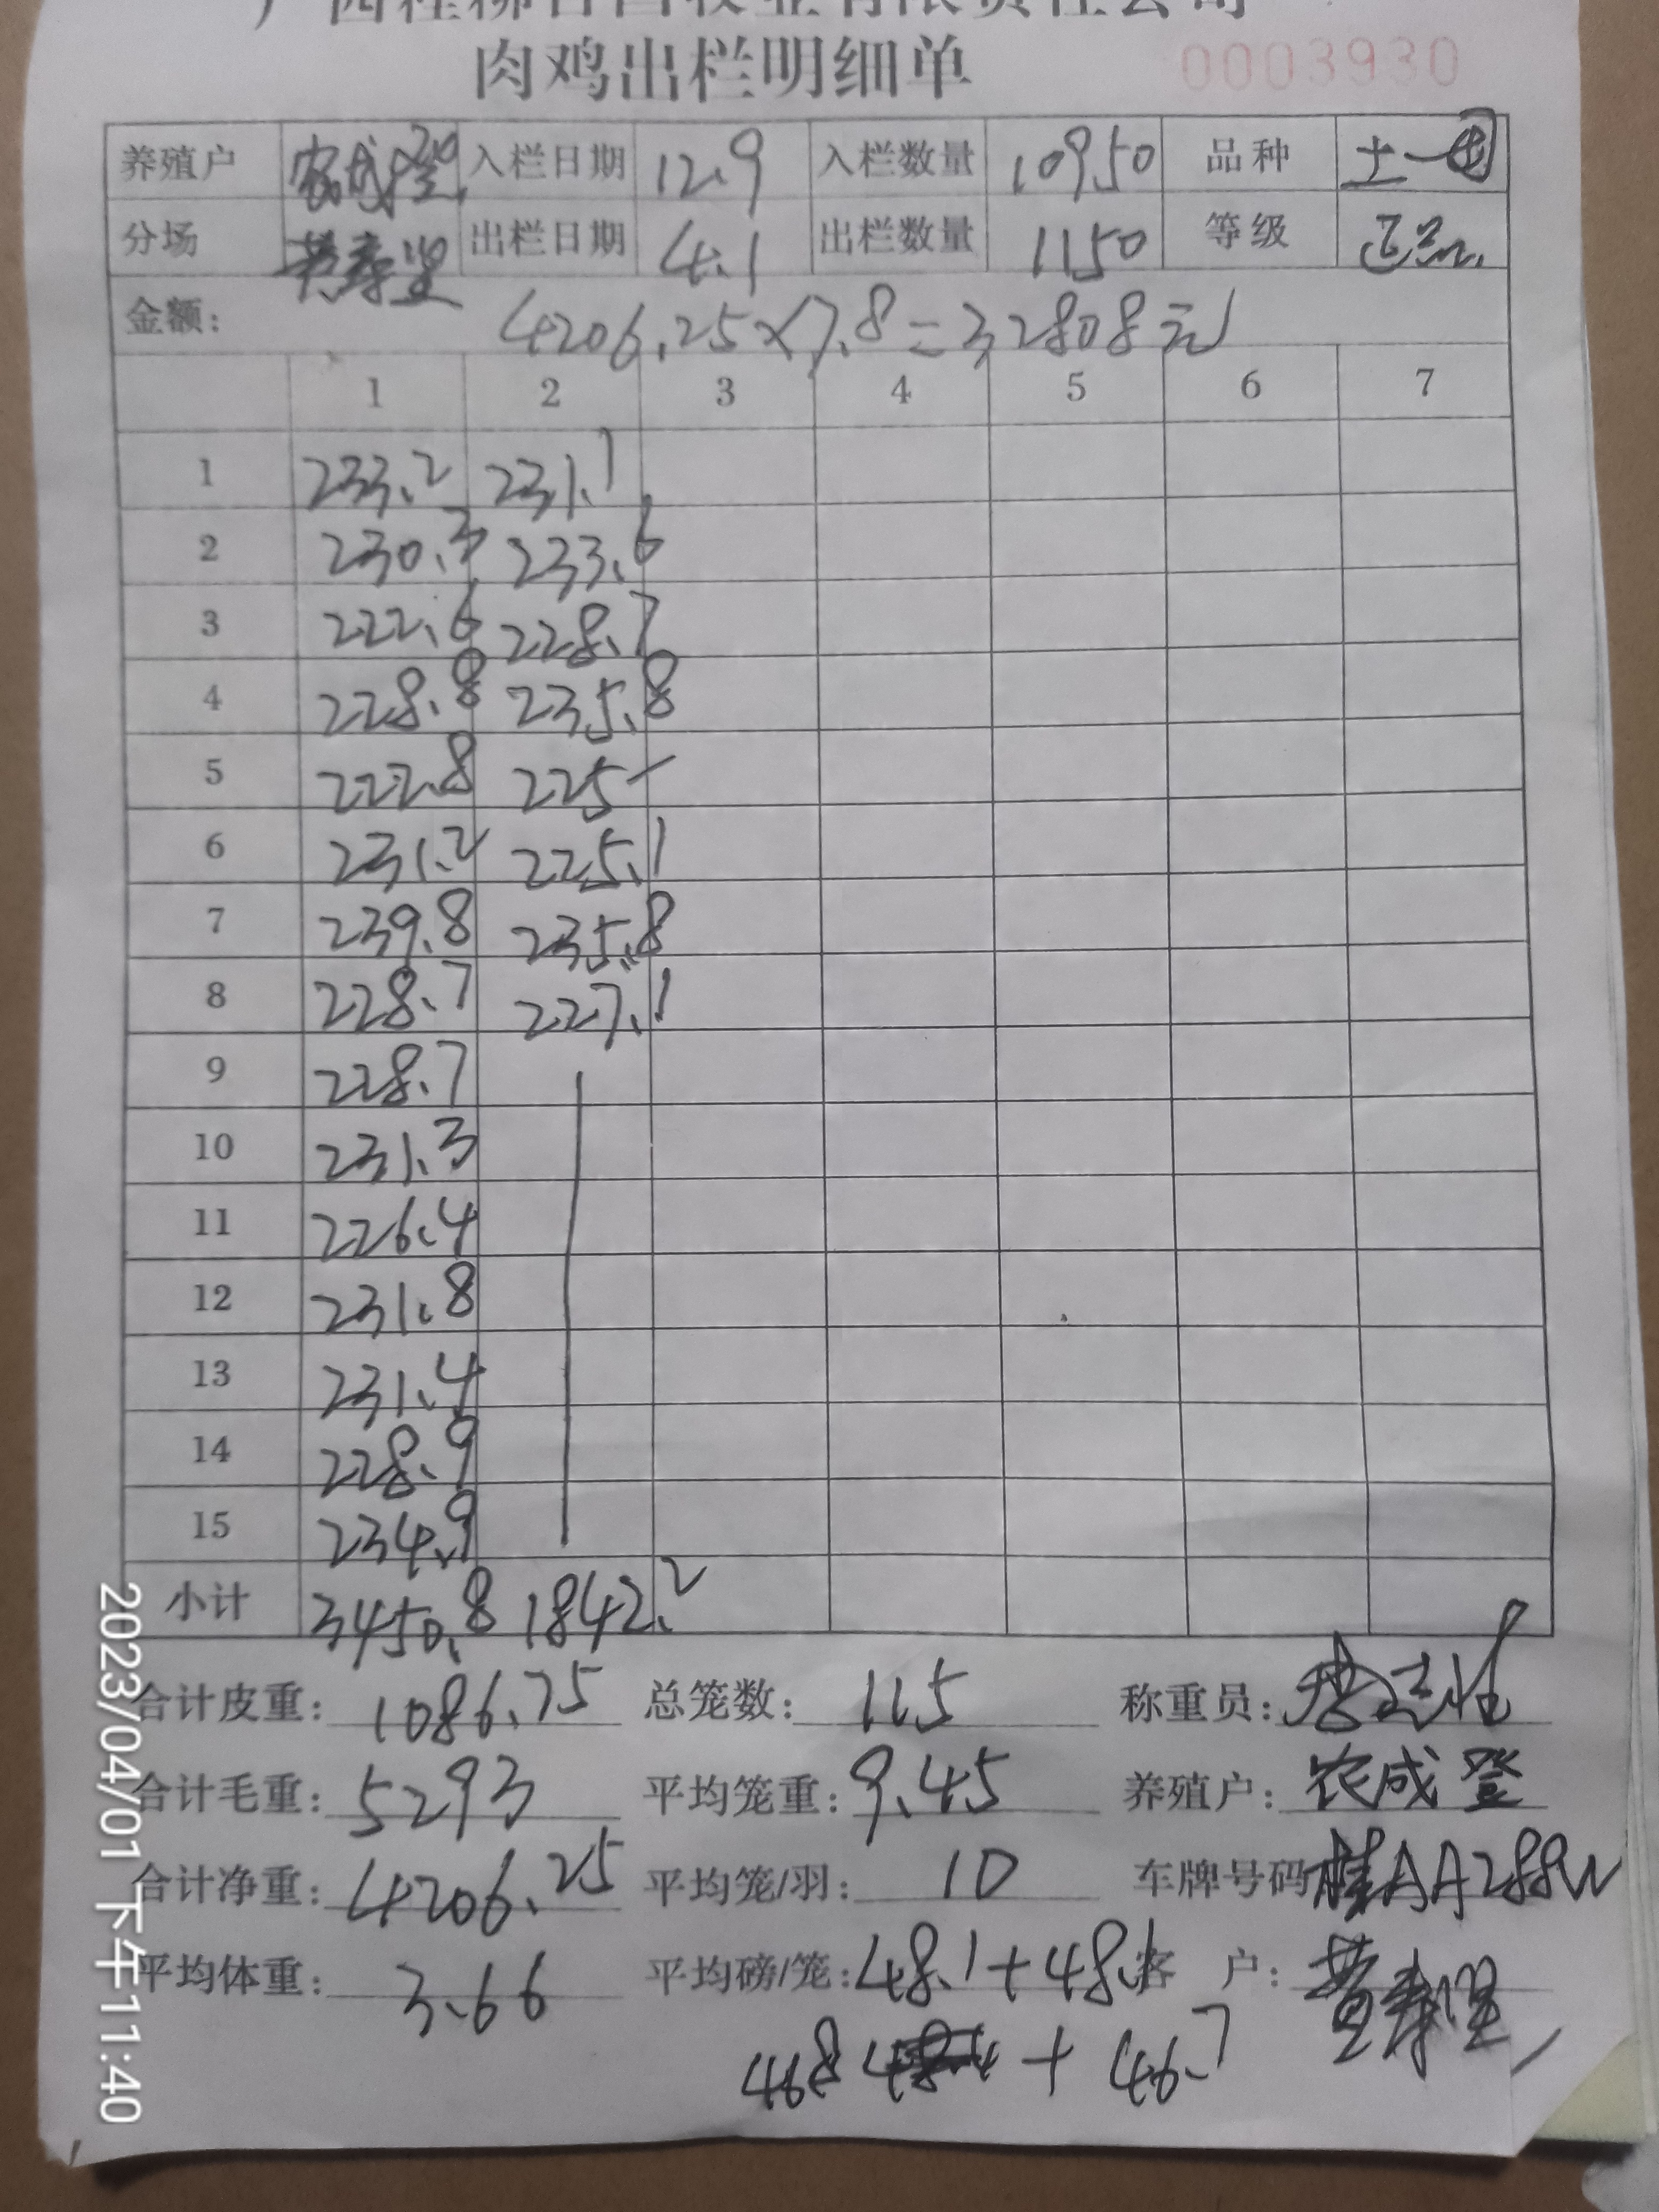 肉鸡出栏明细单 0003930
养殖户 农成登 入栏日期 12.9 入栏数量 10950 品种 土一
分场 出栏日期 4.1 出栏数量 1150 等级 正品
金额: 4206.25×7.8=32808元
1 2 3 4 5 6 7
1 233.2 231.1
2 230.3 233.6
3 222.6 228.7
4 228.8 235.8
5 222.8 225-
6 231.2 225.1
7 239.8 235.8
8 228.7 227.1
9 228.7
10 231.3
11 226.4
12 231.8
13 231.4
14 228.9
15 234.9
小计 3450.8 1842.2
合计皮重: 1086.75 总笼数: 115 称重员:
合计毛重: 5293 平均笼重: 9.45 养殖户: 农成登
合计净重: 4206.25 平均笼/羽: 10 车牌号码 桂AA288W
平均体重: 3.66 平均磅/笼: 48.1+48.1 客户: 黄寿坚
468 + 46.7
2023/04/01 下午11:40